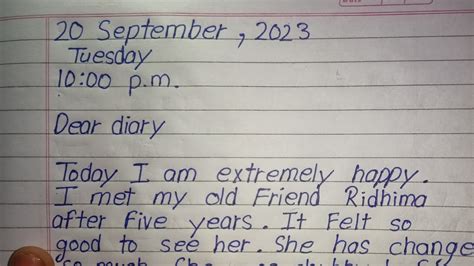 20 September, 2023
Tuesday
10:00 p.m.
Dear diary
Today I am extremely happy.
I met my old Friend Ridhima
after five years. It felt so
good to see her. She has change
so much. She